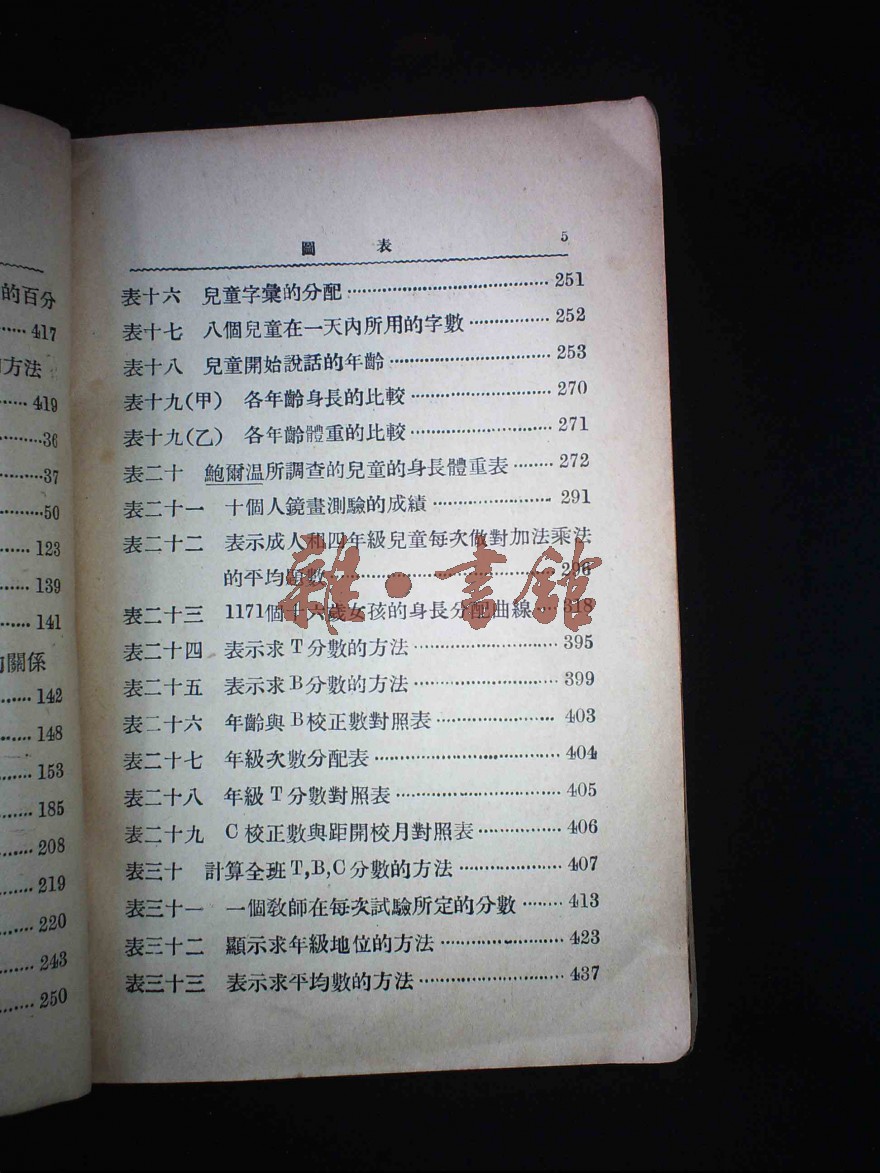 的百分
417
方法
419
36
37
50
123
139
141
關係
142
148
153
185
208
219
220
243
250
圖 表 5
表十六 兒童字彙的分配 251
表十七 八個兒童在一天內所用的字數 252
表十八 兒童開始說話的年齡 253
表十九(甲) 各年齡身長的比較 270
表十九(乙) 各年齡體重的比較 271
表二十 鮑爾温所調查的兒童的身長體重表 272
表二十一 十個人鏡畫測驗的成績 291
表二十二 表示成人和四年級兒童每次做對加法乘法
的平均題數 296
表二十三 1171個十六歲女孩的身長分配曲線 318
表二十四 表示求T分數的方法 395
表二十五 表示求B分數的方法 399
表二十六 年齡與B校正數對照表 403
表二十七 年級次數分配表 404
表二十八 年級T分數對照表 405
表二十九 C校正數與距開校月對照表 406
表三十 計算全班T,B,C分數的方法 407
表三十一 一個教師在每次試驗所定的分數 413
表三十二 顯示求年級地位的方法 423
表三十三 表示求平均數的方法 437
雜·書館